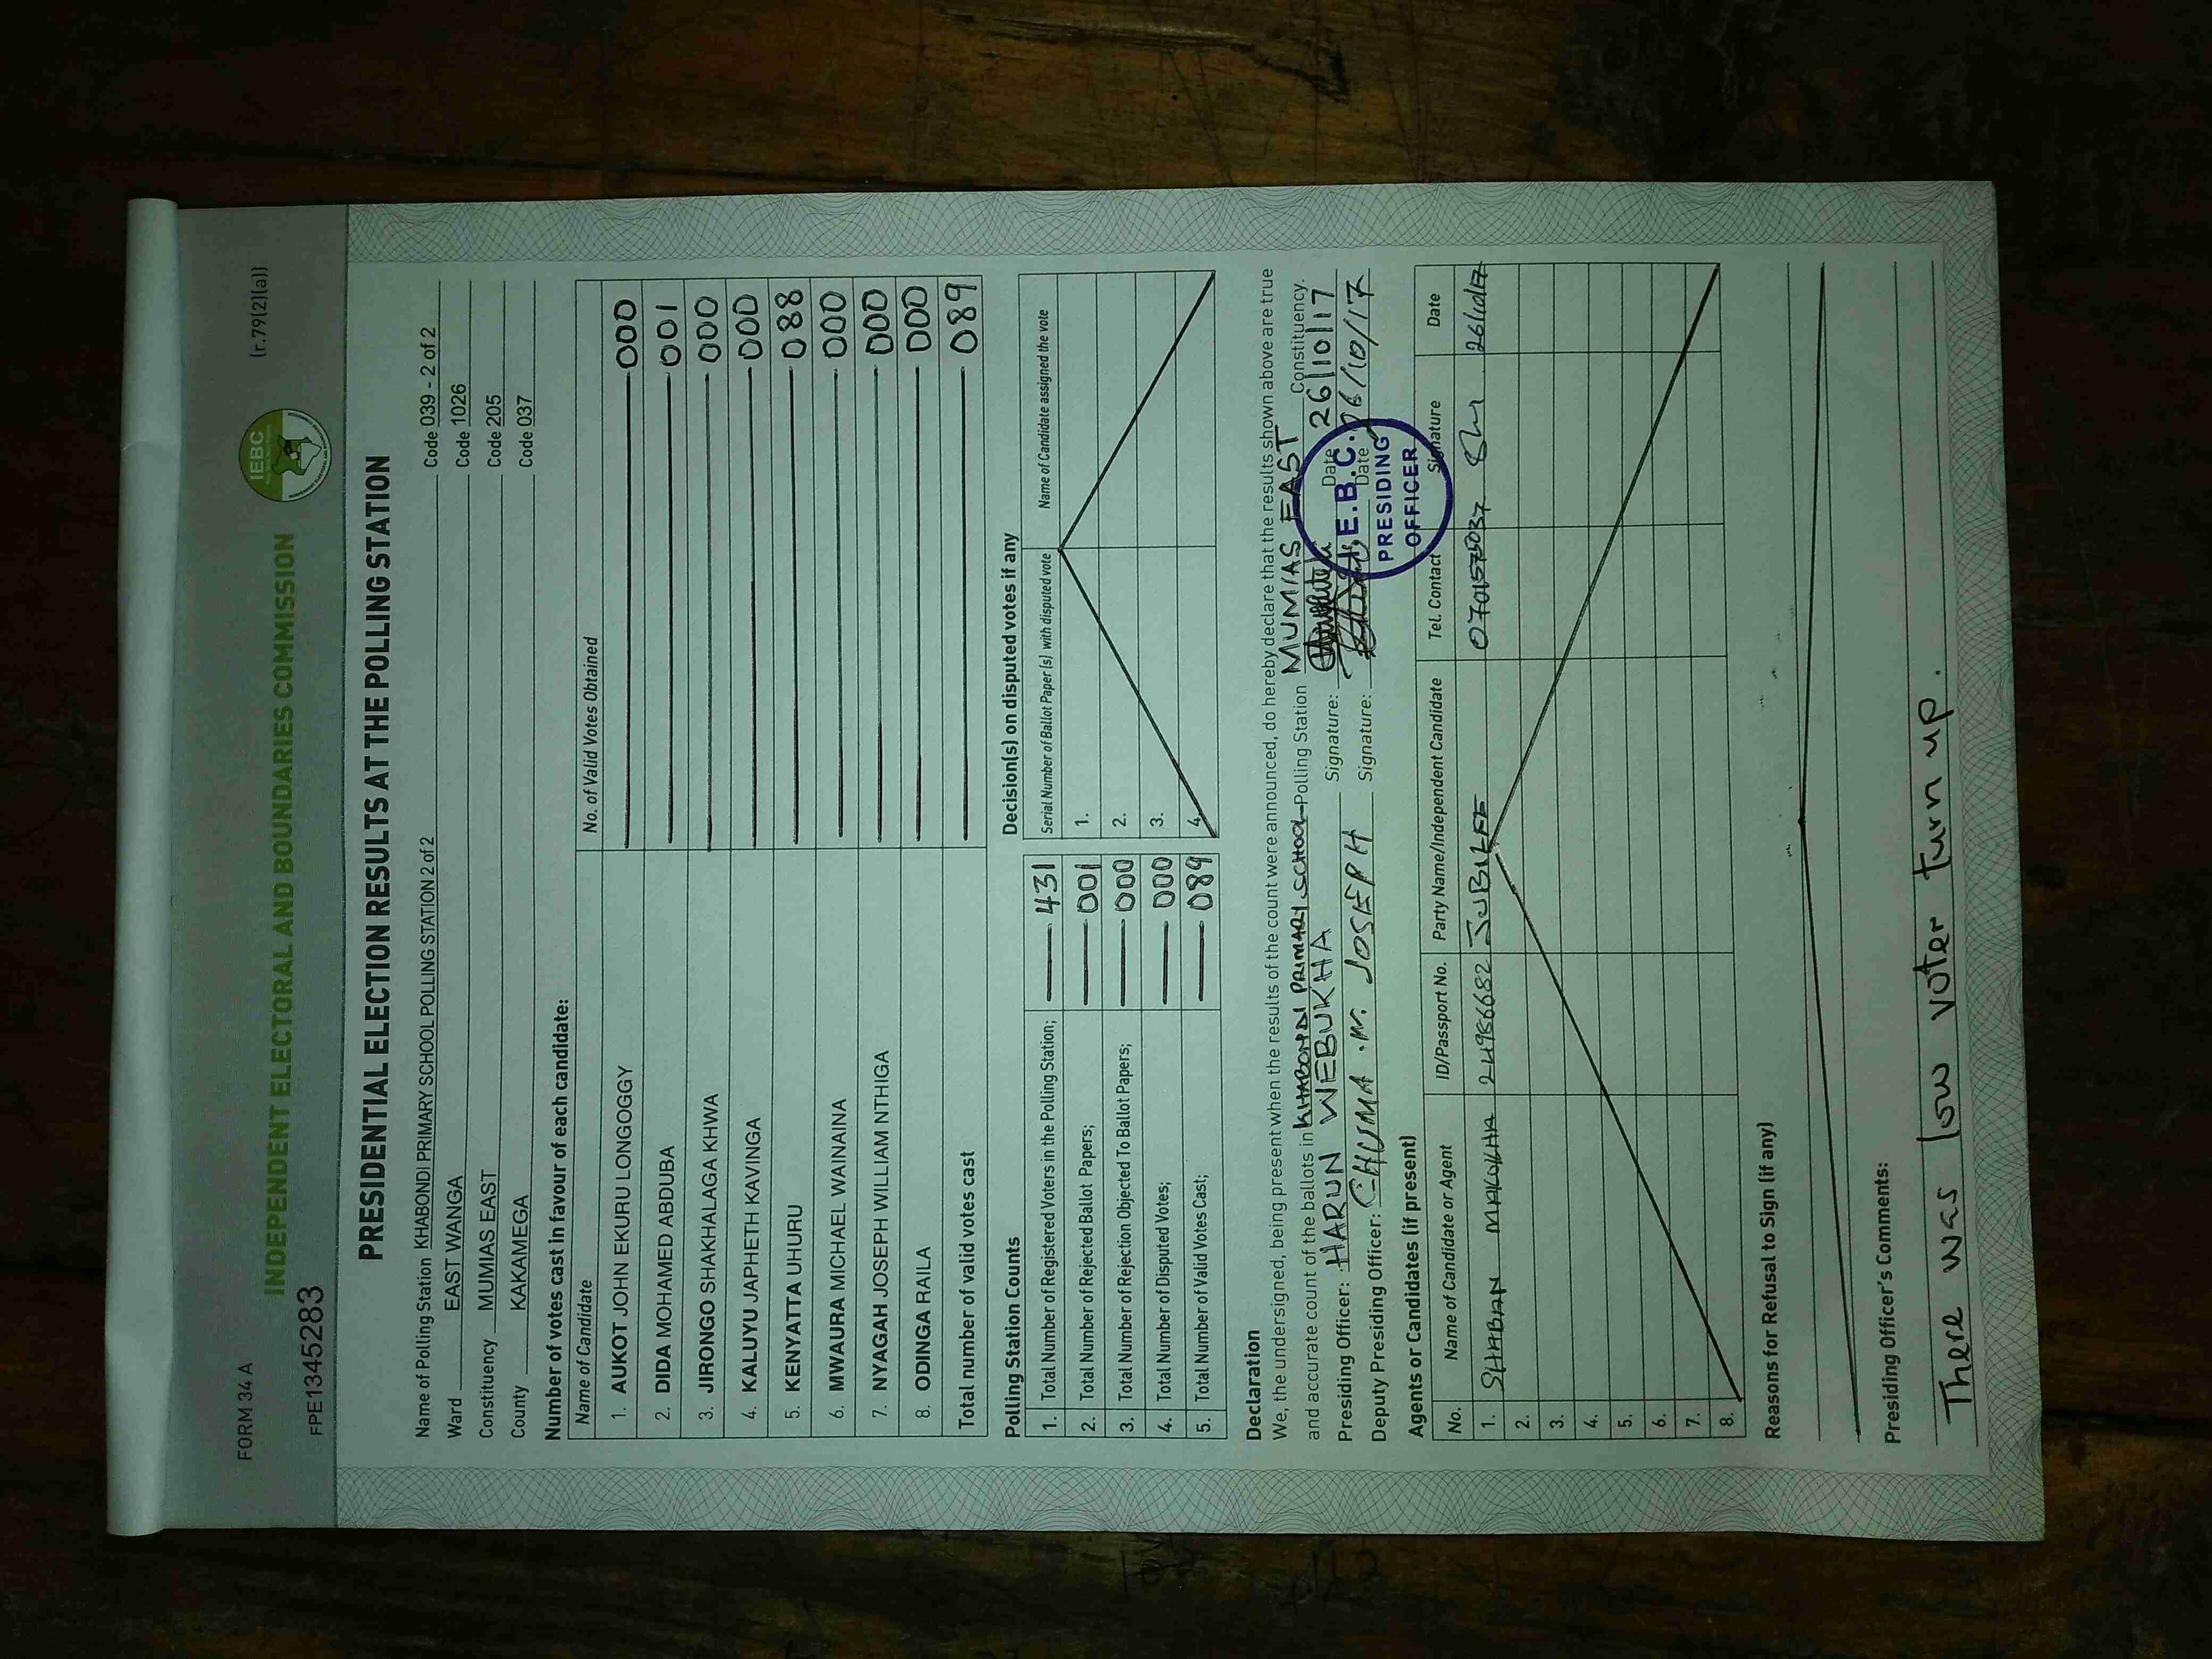 FORM 34 A
(r.79(2)(a))
IEBC
INDEPENDENT ELECTORAL AND BOUNDARIES COMMISSION
FPE1345283
PRESIDENTIAL ELECTION RESULTS AT THE POLLING STATION
Name of Polling Station KHABONDI PRIMARY SCHOOL POLLING STATION 2 of 2 Code 039 - 2 of 2
Ward EAST WANGA Code 1026
Constituency MUMIAS EAST Code 205
County KAKAMEGA Code 037
Number of votes cast in favour of each candidate:
Name of Candidate No. of Valid Votes Obtained
1. AUKOT JOHN EKURU LONGOGGY 000
2. DIDA MOHAMED ABDUBA 001
3. JIRONGO SHAKHALAGA KHWA 000
4. KALUYU JAPHETH KAVINGA 000
5. KENYATTA UHURU 088
6. MWAURA MICHAEL WAINAINA 000
7. NYAGAH JOSEPH WILLIAM NTHIGA 000
8. ODINGA RAILA 000
Total number of valid votes cast 089
Polling Station Counts
1. Total Number of Registered Voters in the Polling Station; 431
2. Total Number of Rejected Ballot Papers; 001
3. Total Number of Rejection Objected To Ballot Papers; 000
4. Total Number of Disputed Votes; 000
5. Total Number of Valid Votes Cast; 089
Decision(s) on disputed votes if any
Serial Number of Ballot Paper (s) with disputed vote Name of Candidate assigned the vote
1.
2.
3.
4.
Declaration
We, the undersigned, being present when the results of the count were announced, do hereby declare that the results shown above are true
and accurate count of the ballots in KHABONDI PRIMARY SCHOOL Polling Station MUMIAS EAST Constituency.
Presiding Officer: HARUN WEBUKHA Signature: Date 26/10/17
Deputy Presiding Officer: CHUMA .M. JOSEPH Signature: Date 26/10/17
I.E.B.C.
PRESIDING
OFFICER
Agents or Candidates (if present)
No. Name of Candidate or Agent ID/Passport No. Party Name/Independent Candidate Tel. Contact Signature Date
1. SHABAN MAKOKHA 24986682 JUBILEE 26/10/17
2.
3.
4.
5.
6.
7.
8.
Reasons for Refusal to Sign (if any)
Presiding Officer's Comments:
There was low voter turn up.